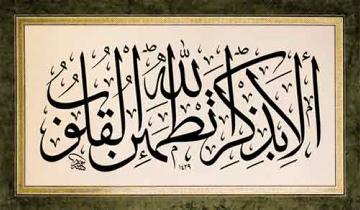 ألا بذكر الله تطمئن القلوب
١٤٢٩